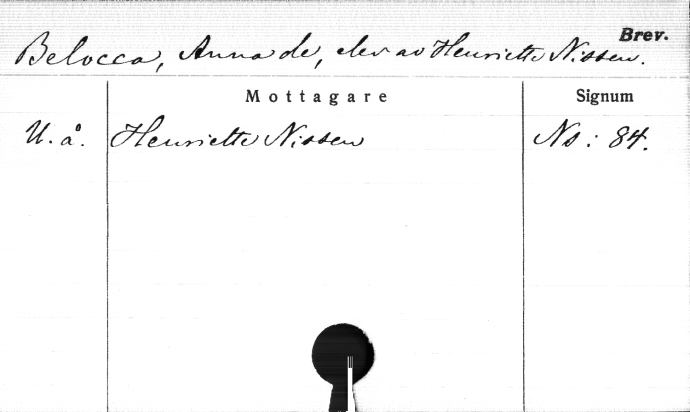 Brev.
Belocca, Anna de, elev av Henriette Nissen.
Mottagare Signum
U. å. Henriette Nissen Ns: 84.